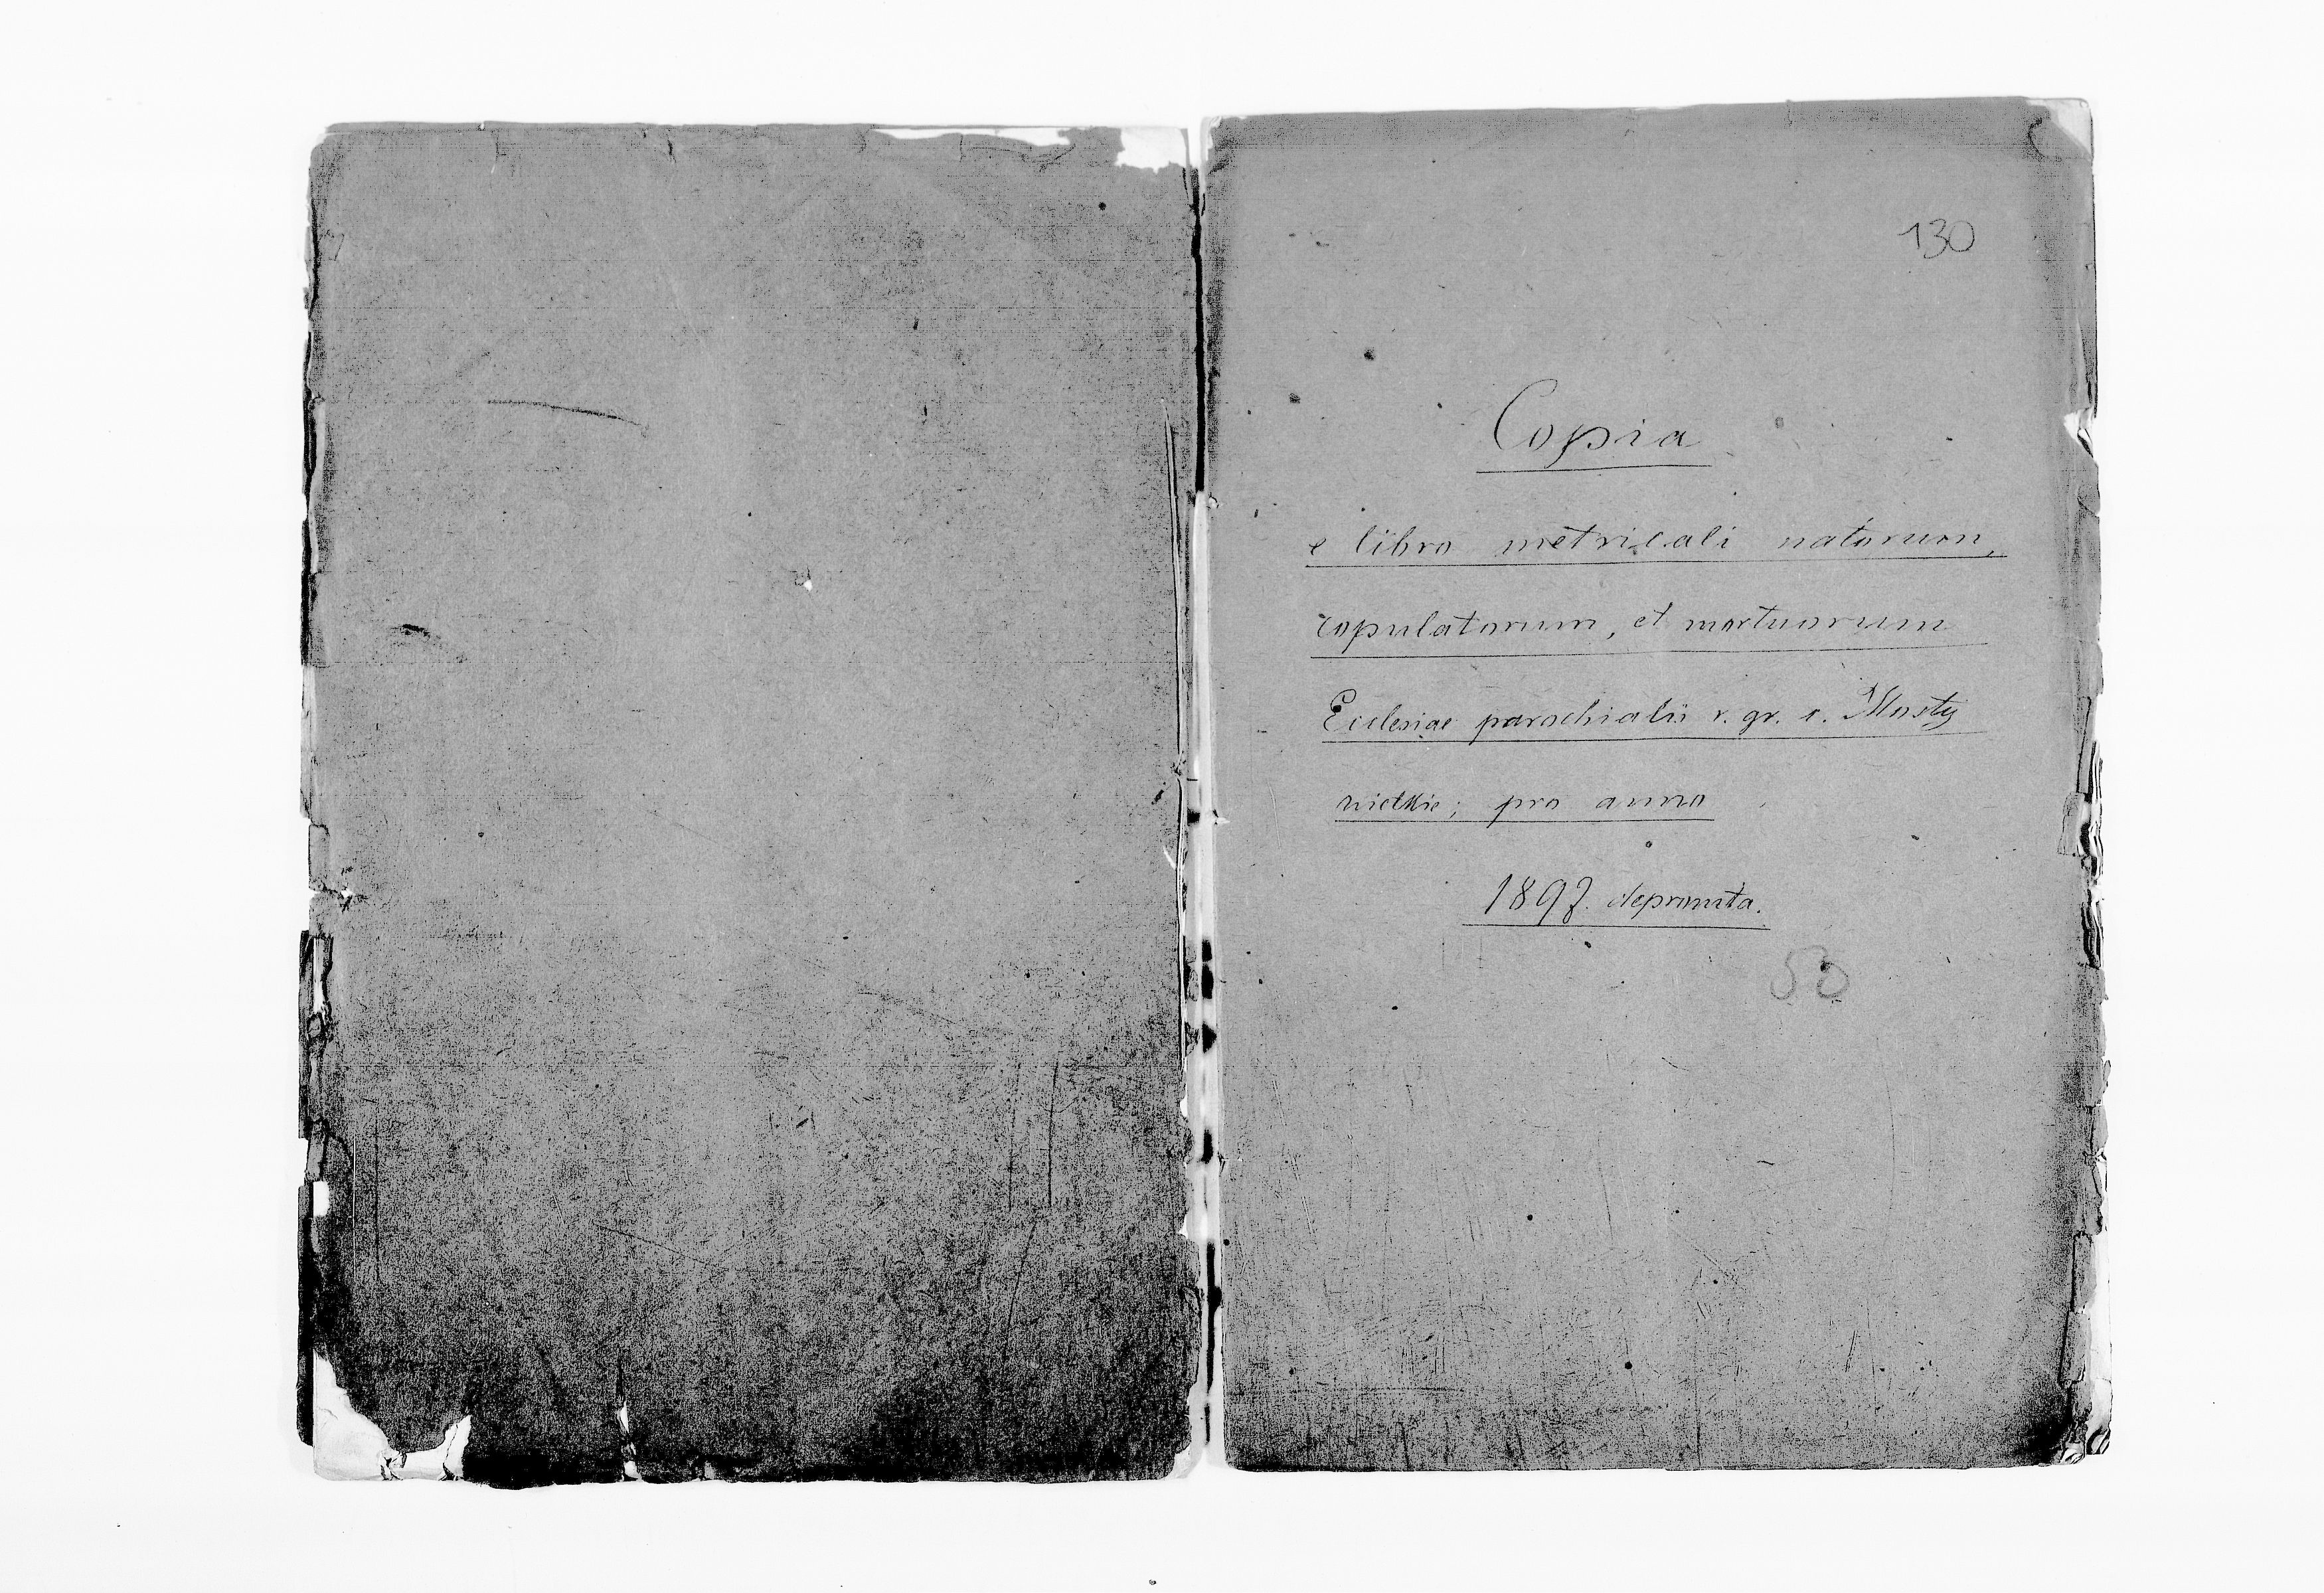 130
Copia
e libro metricali natorum,
copulatorum, et mortuorum
Ecclesiae parochialis r. gr. c. Mosty
wielkie; pro anno
1897. depromta.
50